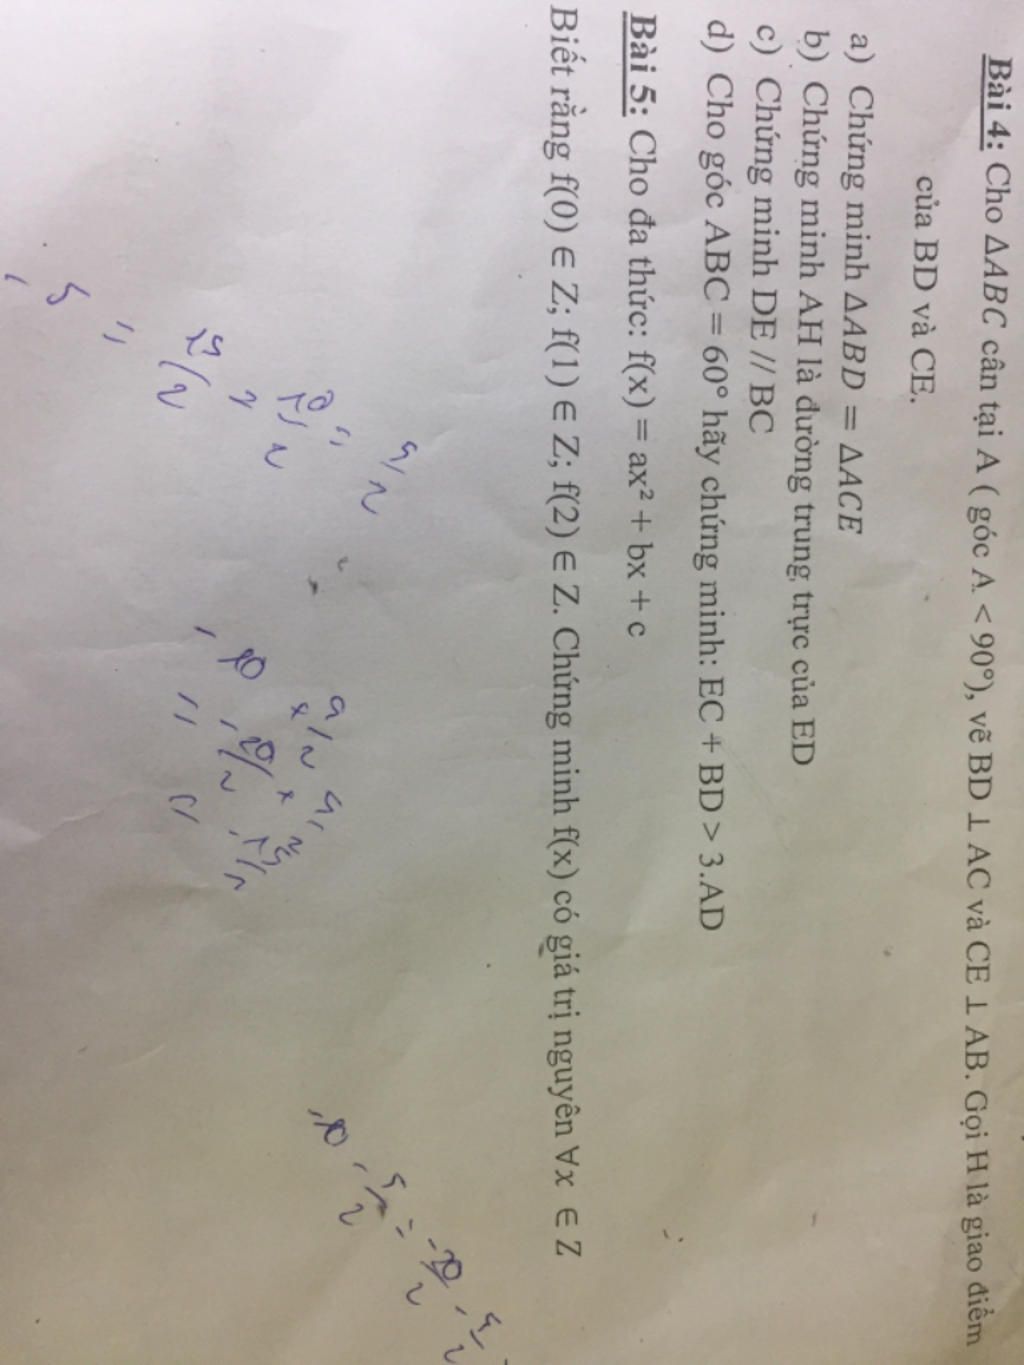 Bài 4: Cho ΔABC cân tại A ( góc A < 90°), vẽ BD ⊥ AC và CE ⊥ AB. Gọi H là giao điểm
của BD và CE.
a) Chứng minh ΔABD = ΔACE
b) Chứng minh AH là đường trung trực của ED
c) Chứng minh DE // BC
d) Cho góc ABC = 60° hãy chứng minh: EC + BD > 3.AD
Bài 5: Cho đa thức: f(x) = ax² + bx + c
Biết rằng f(0) ∈ Z; f(1) ∈ Z; f(2) ∈ Z. Chứng minh f(x) có giá trị nguyên ∀x ∈ Z